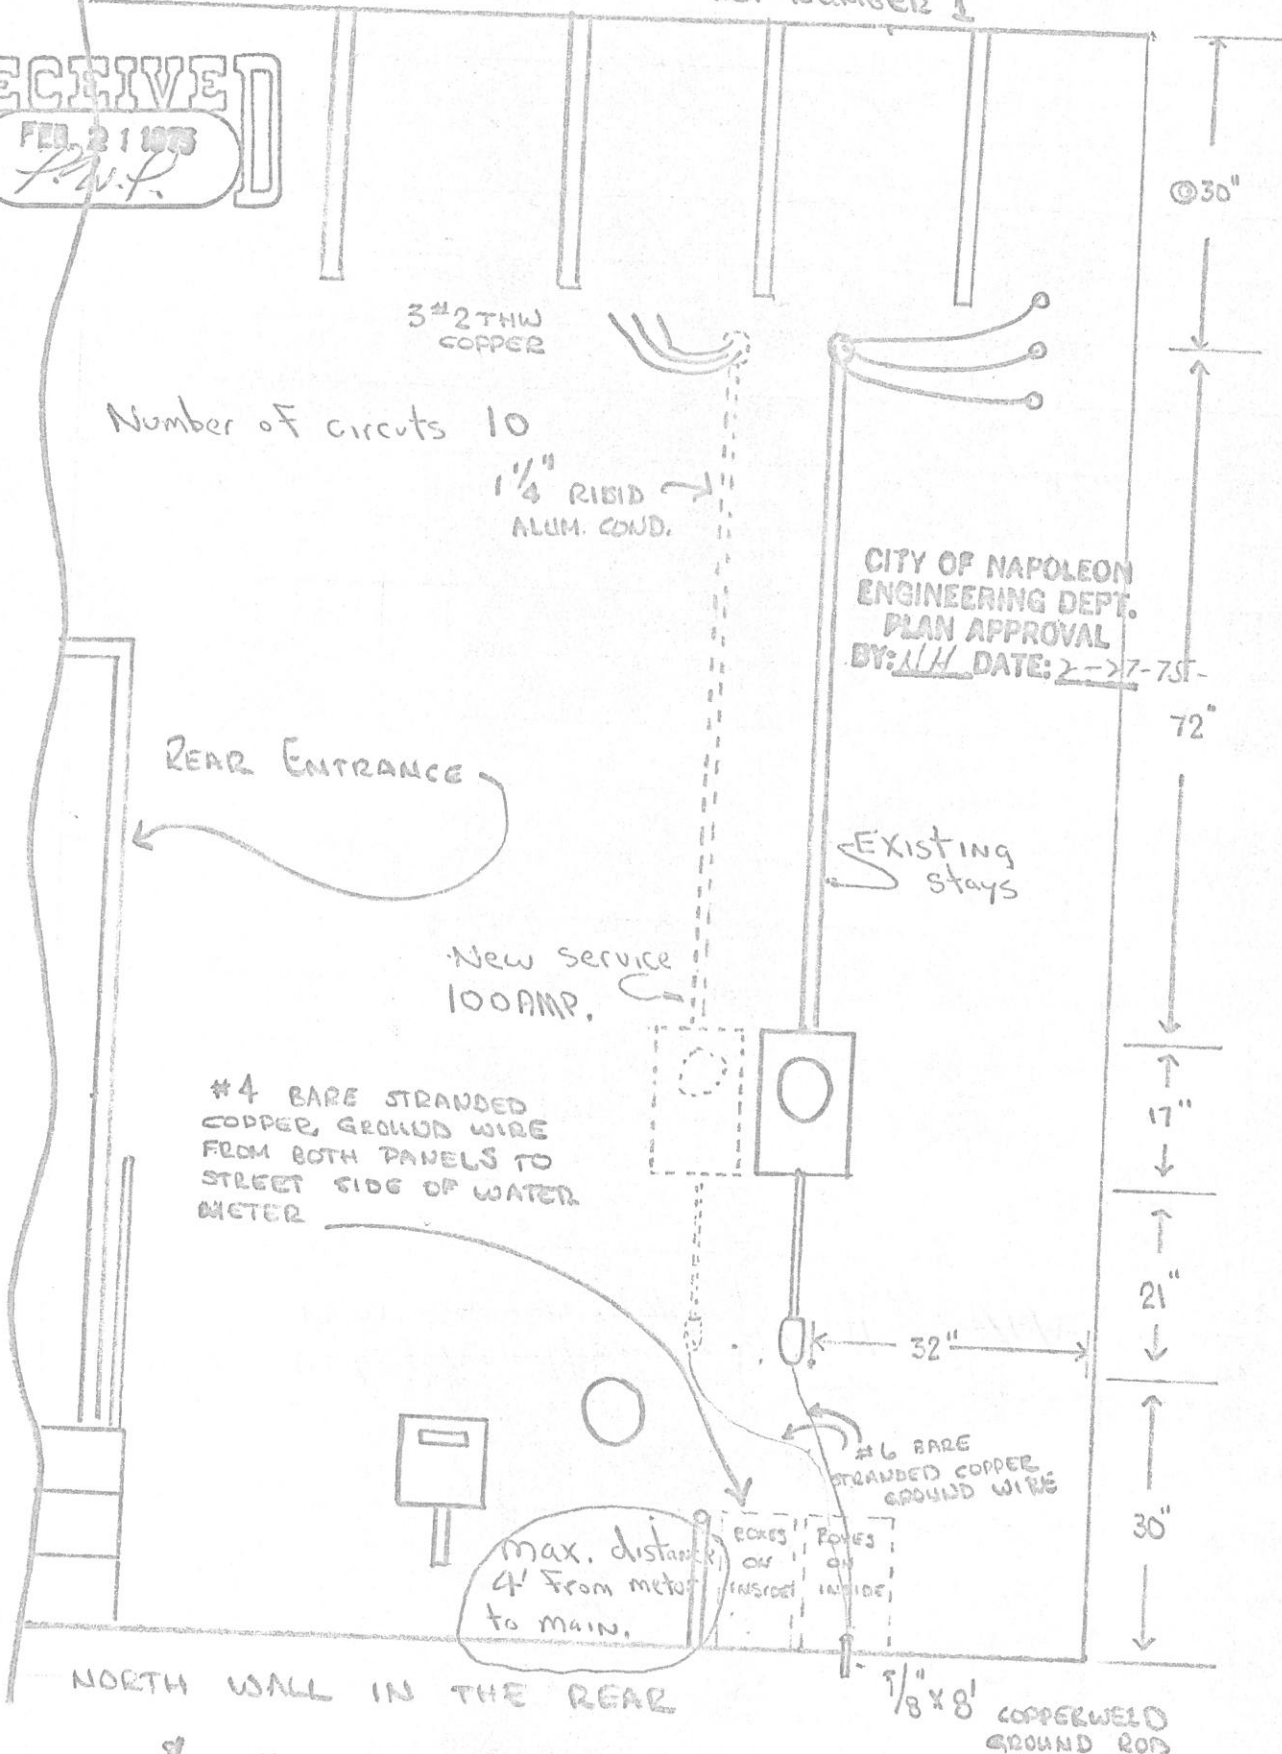 NUMBER 1
ECEIVED
FEB. 21 1975
P.W.P.
@30"
3#2 THW
COPPER
Number of circuts 10
1 1/4" RIGID
ALUM. COND.
CITY OF NAPOLEON
ENGINEERING DEPT.
PLAN APPROVAL
BY: NH DATE: 2-27-75
72"
REAR ENTRANCE
Existing
Stays
New Service
100AMP.
17"
#4 BARE STRANDED
COPPER GROUND WIRE
FROM BOTH PANELS TO
STREET SIDE OF WATER
METER
21"
32"
#6 BARE
STRANDED COPPER
GROUND WIRE
30"
max. distance
4' From meter
to main.
BOXES
ON
INSIDE
BOXES
ON
INSIDE
NORTH WALL IN THE REAR
5/8" x 8' COPPERWELD
GROUND ROD